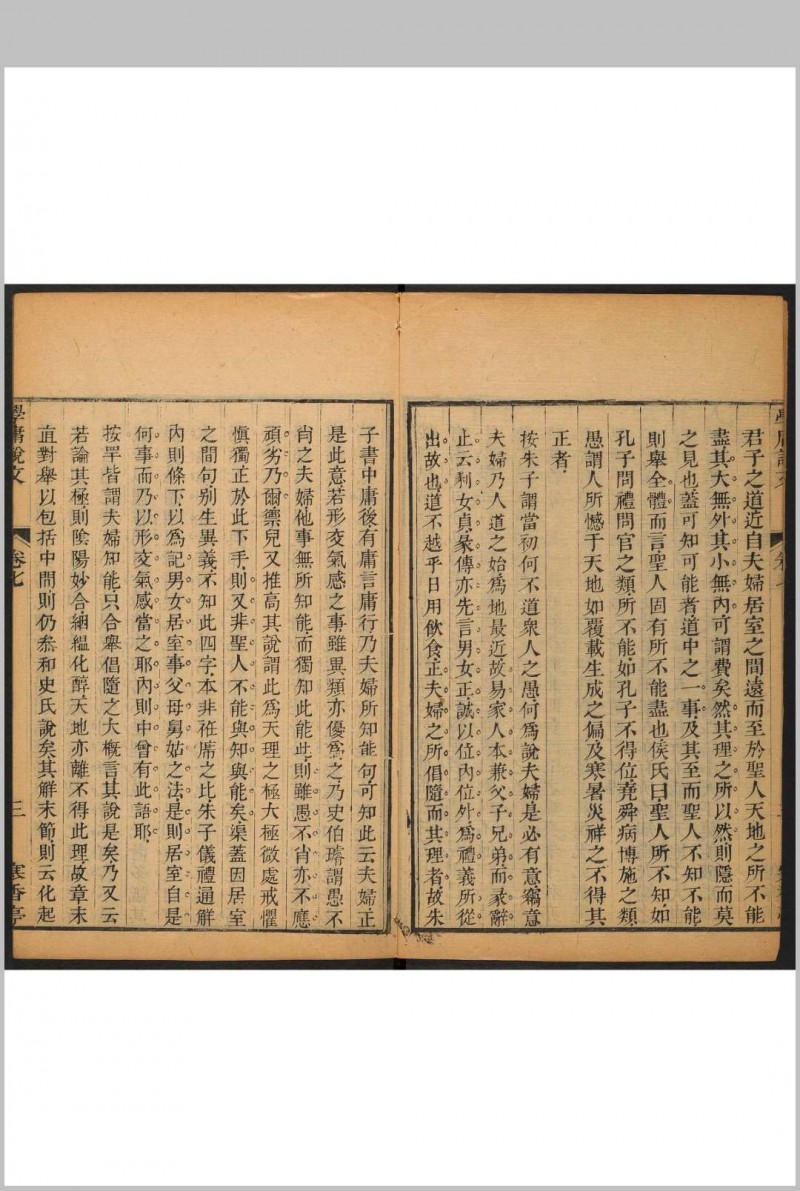 君子之道近自夫婦居室之間遠而至於聖人天地之所不能
盡其大無外其小無內可謂費矣然其理之所以然則隱而莫
之見也蓋可知可能者道中之一事及其至而聖人不知不能
則舉全體而言聖人固有所不能盡也侯氏曰聖人所不知如
孔子問禮問官之類所不能如孔子不得位堯舜病博施之類
愚謂人所憾于天地如覆載生成之偏及寒暑災祥之不得其
正者
按朱子謂當初何不道衆人之愚何爲說夫婦是必有意竊意
夫婦乃人道之始爲地最近故易家人本兼父子兄弟而彖辭
止云利女貞彖傳亦先言男女正誠以位內位外爲禮義所從
出故也道不越乎日用飲食正夫婦之所倡隨而其理者故朱
子書中庸後有庸言庸行乃夫婦所知能句可知此云夫婦正
是此意若形交氣感之事雖異類亦優爲之乃史伯璿謂愚不
肖之夫婦他事無所知能而獨知此能此則雖愚不肖亦不應
頑劣乃爾禦兒又推高其說謂此爲天理之極大極微處戒懼
慎獨正於此下手則又非聖人不能與知與能矣渠蓋因居室
之間句别生異義不知此四字本非袵席之比朱子儀禮通解
內則條下以爲記男女居室事父母舅姑之法是則居室自是
何事而乃以形交氣感當之耶內則中曾有此語耶
按罕皆謂夫婦知能只合舉倡隨之大概言其說是矣乃又云
若論其極則陰陽妙合絪縕化醇天地亦離不得此理故章末
直對舉以包括中間則仍叅和史氏說矣其解末節則云化起
學庸說文
卷七
三
寒香亭